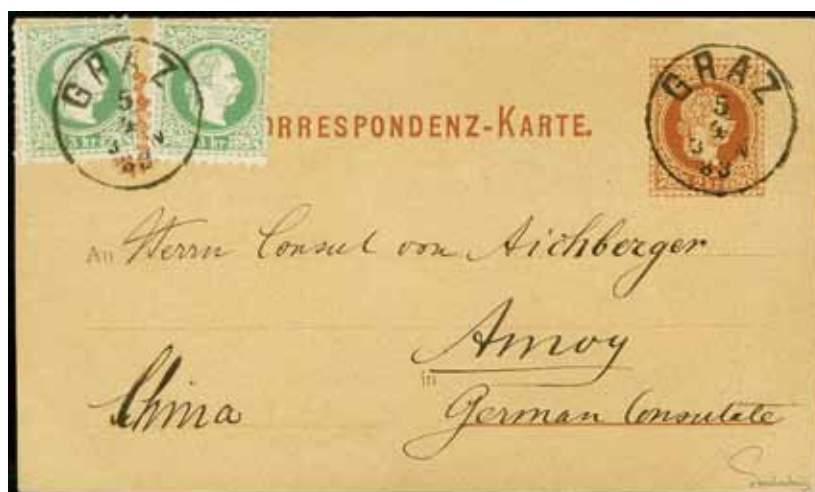 GRAZ
5
4
3 N
83
3 kr.
3 kr.
ORRESPONDENZ-KARTE.
GRAZ
5
4
3 N
83
An Herrn Consul von Aichberger
Amoy
in
China
German Consulate